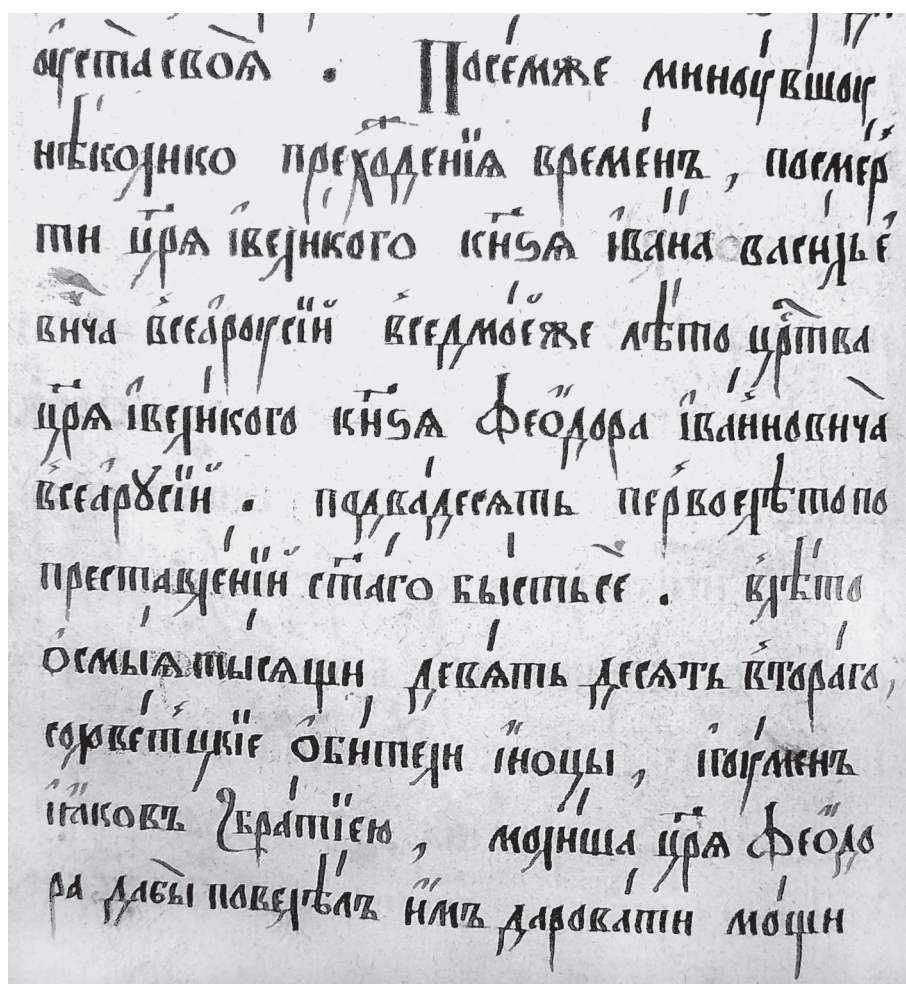 оустасвоѧ . Посемже миноувшоу
нѣколико преходенїѧ временъ , посмер
ти цр҃ѧ ївеликого кн҃ѕѧ їва́на василье
вича всеѧроусїи вседмоеже лѣто цр҃тва
цр҃ѧ ївеликого кн҃ѕѧ Ѳеѻдора їванновича
всеѧрꙋсїи . подвадесѧть первоелѣтопо
преставленїи ст҃аго бы́стьсе . влѣто
ѻсмыѧтысѧщи девѧть десѧть втораго,
соловетцкїе ѻбители їноцы , їгоуменъ
їѧковъ збратїею , молиша цр҃ѧ Ѳеѻдо
ра дабы повелѣлъ имъ даровати мощи